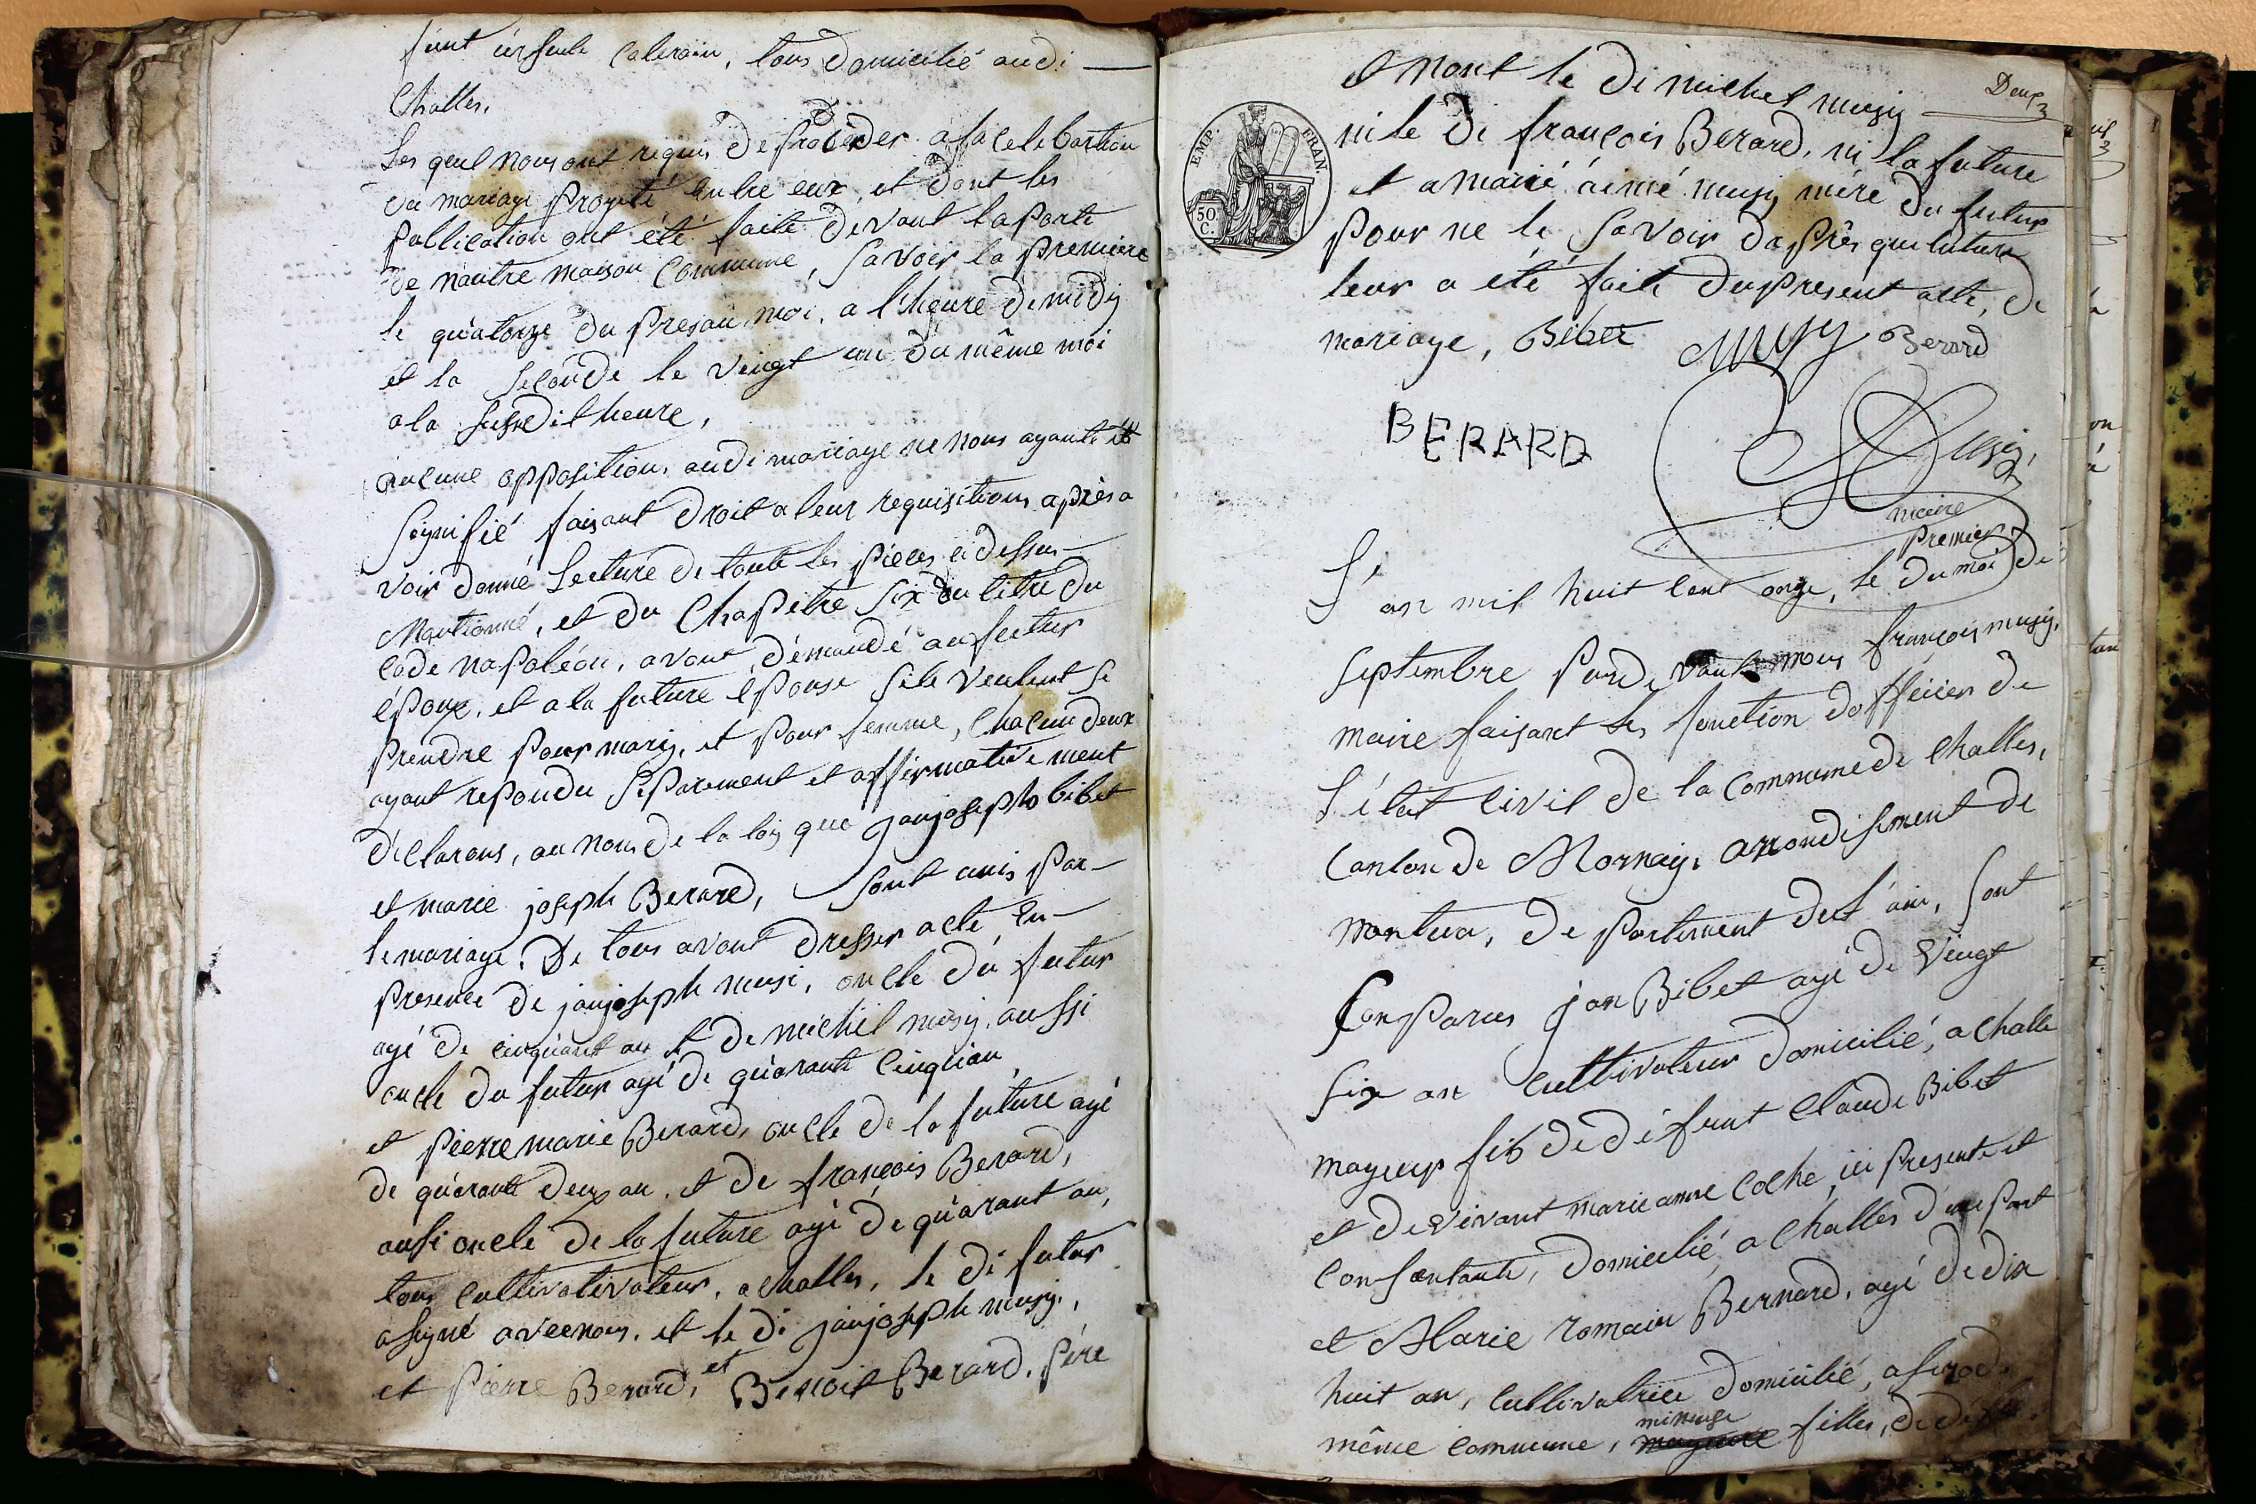 funt urseule Calerain, tous domicilié audi
Challes.
Les quel nous ont requis de procéder a la celebastion
du mariage projeté entre eux, et dont les
publication ont été faite devant la porte
de nautre maison commune, savoir la premiere
le quatorze du presan moi, a l'heure de midy
et la seconde le vingt un du même moi
a la susdit heure,
aucune opposition, audi mariage ne nous ayant été
signifié faisant droit a leur requisitions, après a
voir donné lecture de toute les pièces ci dessus
mantionné, et du Chapitre six du titre du
code napoléon, avont démandé au futur
époux, et a la future épouse sile veulent se
prendre pour mary, et pour femme, chacun deux
ayant repondu séparement et affirmative ment
déclarons, au nom de la loy que janjoseph bibet
et marie joseph Berard, sont unis par
le mariage. De tous avont dresser acte, en
presence de janjoseph musi, oncle du futur
agé de cinquant an et de michel musy, aussi
oncle du futur agé de quarante cinq an,
et pierre marie Berard, oncle de la future agé
de quarante deux an, et de françois Berard,
ausi oncle de la future agé de quarant an,
tous cultivativateur, a challes, le di futur
a signé avec nous, et le di janjoseph musy,
et pierre Berard, et Benoit Berard, père
Deux
et nont le di michel musy
ni le di françois Berard, ni la future
et a marié aimé musy mère du futur
pour ne le savoir daprès que lutur
leur a été faite du present acte, de
mariage, Bibet Musy Berard
EMP. FRAN.
50 C.
BERARD
Musy,
maire
premier
L'an mil huit cent onze, le du moi de
septembre par de vant nous françois musy,
maire faisant les fonction dofficier de
l'état civil de la commune de challes,
canton de Mornay, arrondisement de
nantua, departement de l'ain, sont
Comparus jan Bibet agé de vingt
six an cultivateur domicilié, a challe
mayeur fils de défunt claude Bibet
et de vivant marie anne coche, ici presente et
consantante, domicilié, a challes d'une part
et Marie romain Bernard, agé de dix
huit an, cultivatrice domicilié, a
mineuse
même commune, mayeure filles, de